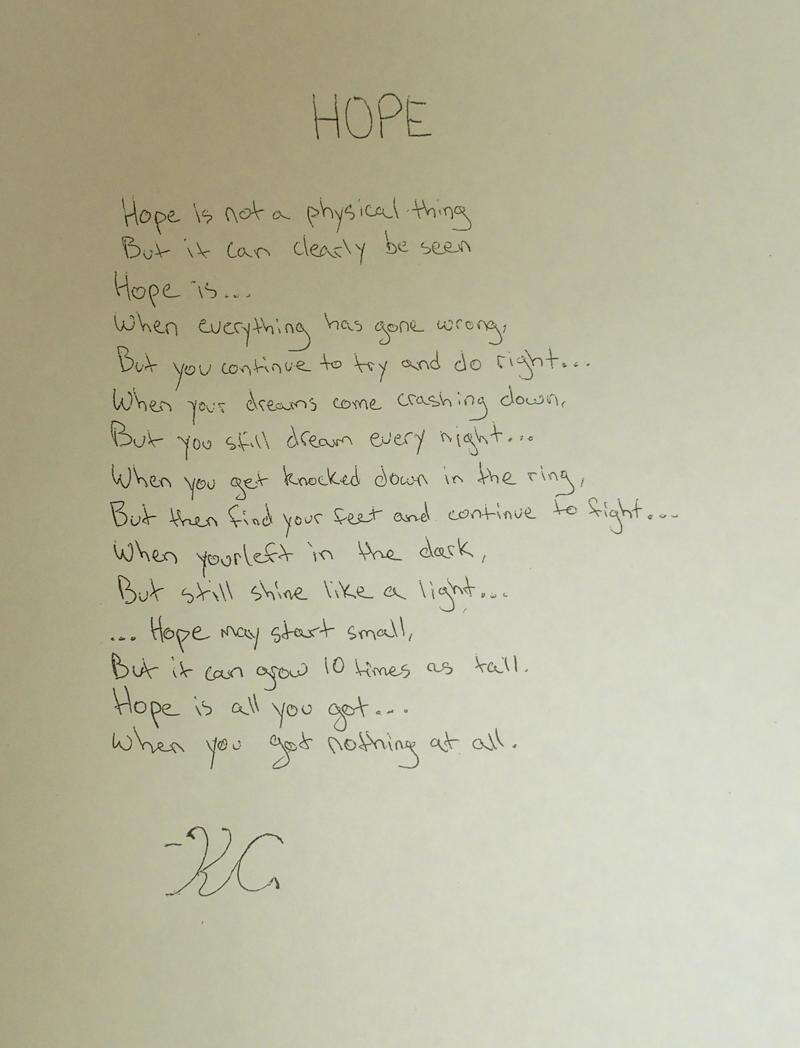 HOPE
Hope is not a physical thing
But it can clearly be seen
Hope is...
When everything has gone wrong,
But you continue to try and do right...
When your dreams come crashing down,
But you still dream every night...
When you get knocked down in the ring,
But then find your feet and continue to fight...
When yourleft in the dark,
But still shine like a light...
... Hope may start small,
But it can grow 10 times as tall.
Hope is all you got...
When you got nothing at all.
-KC